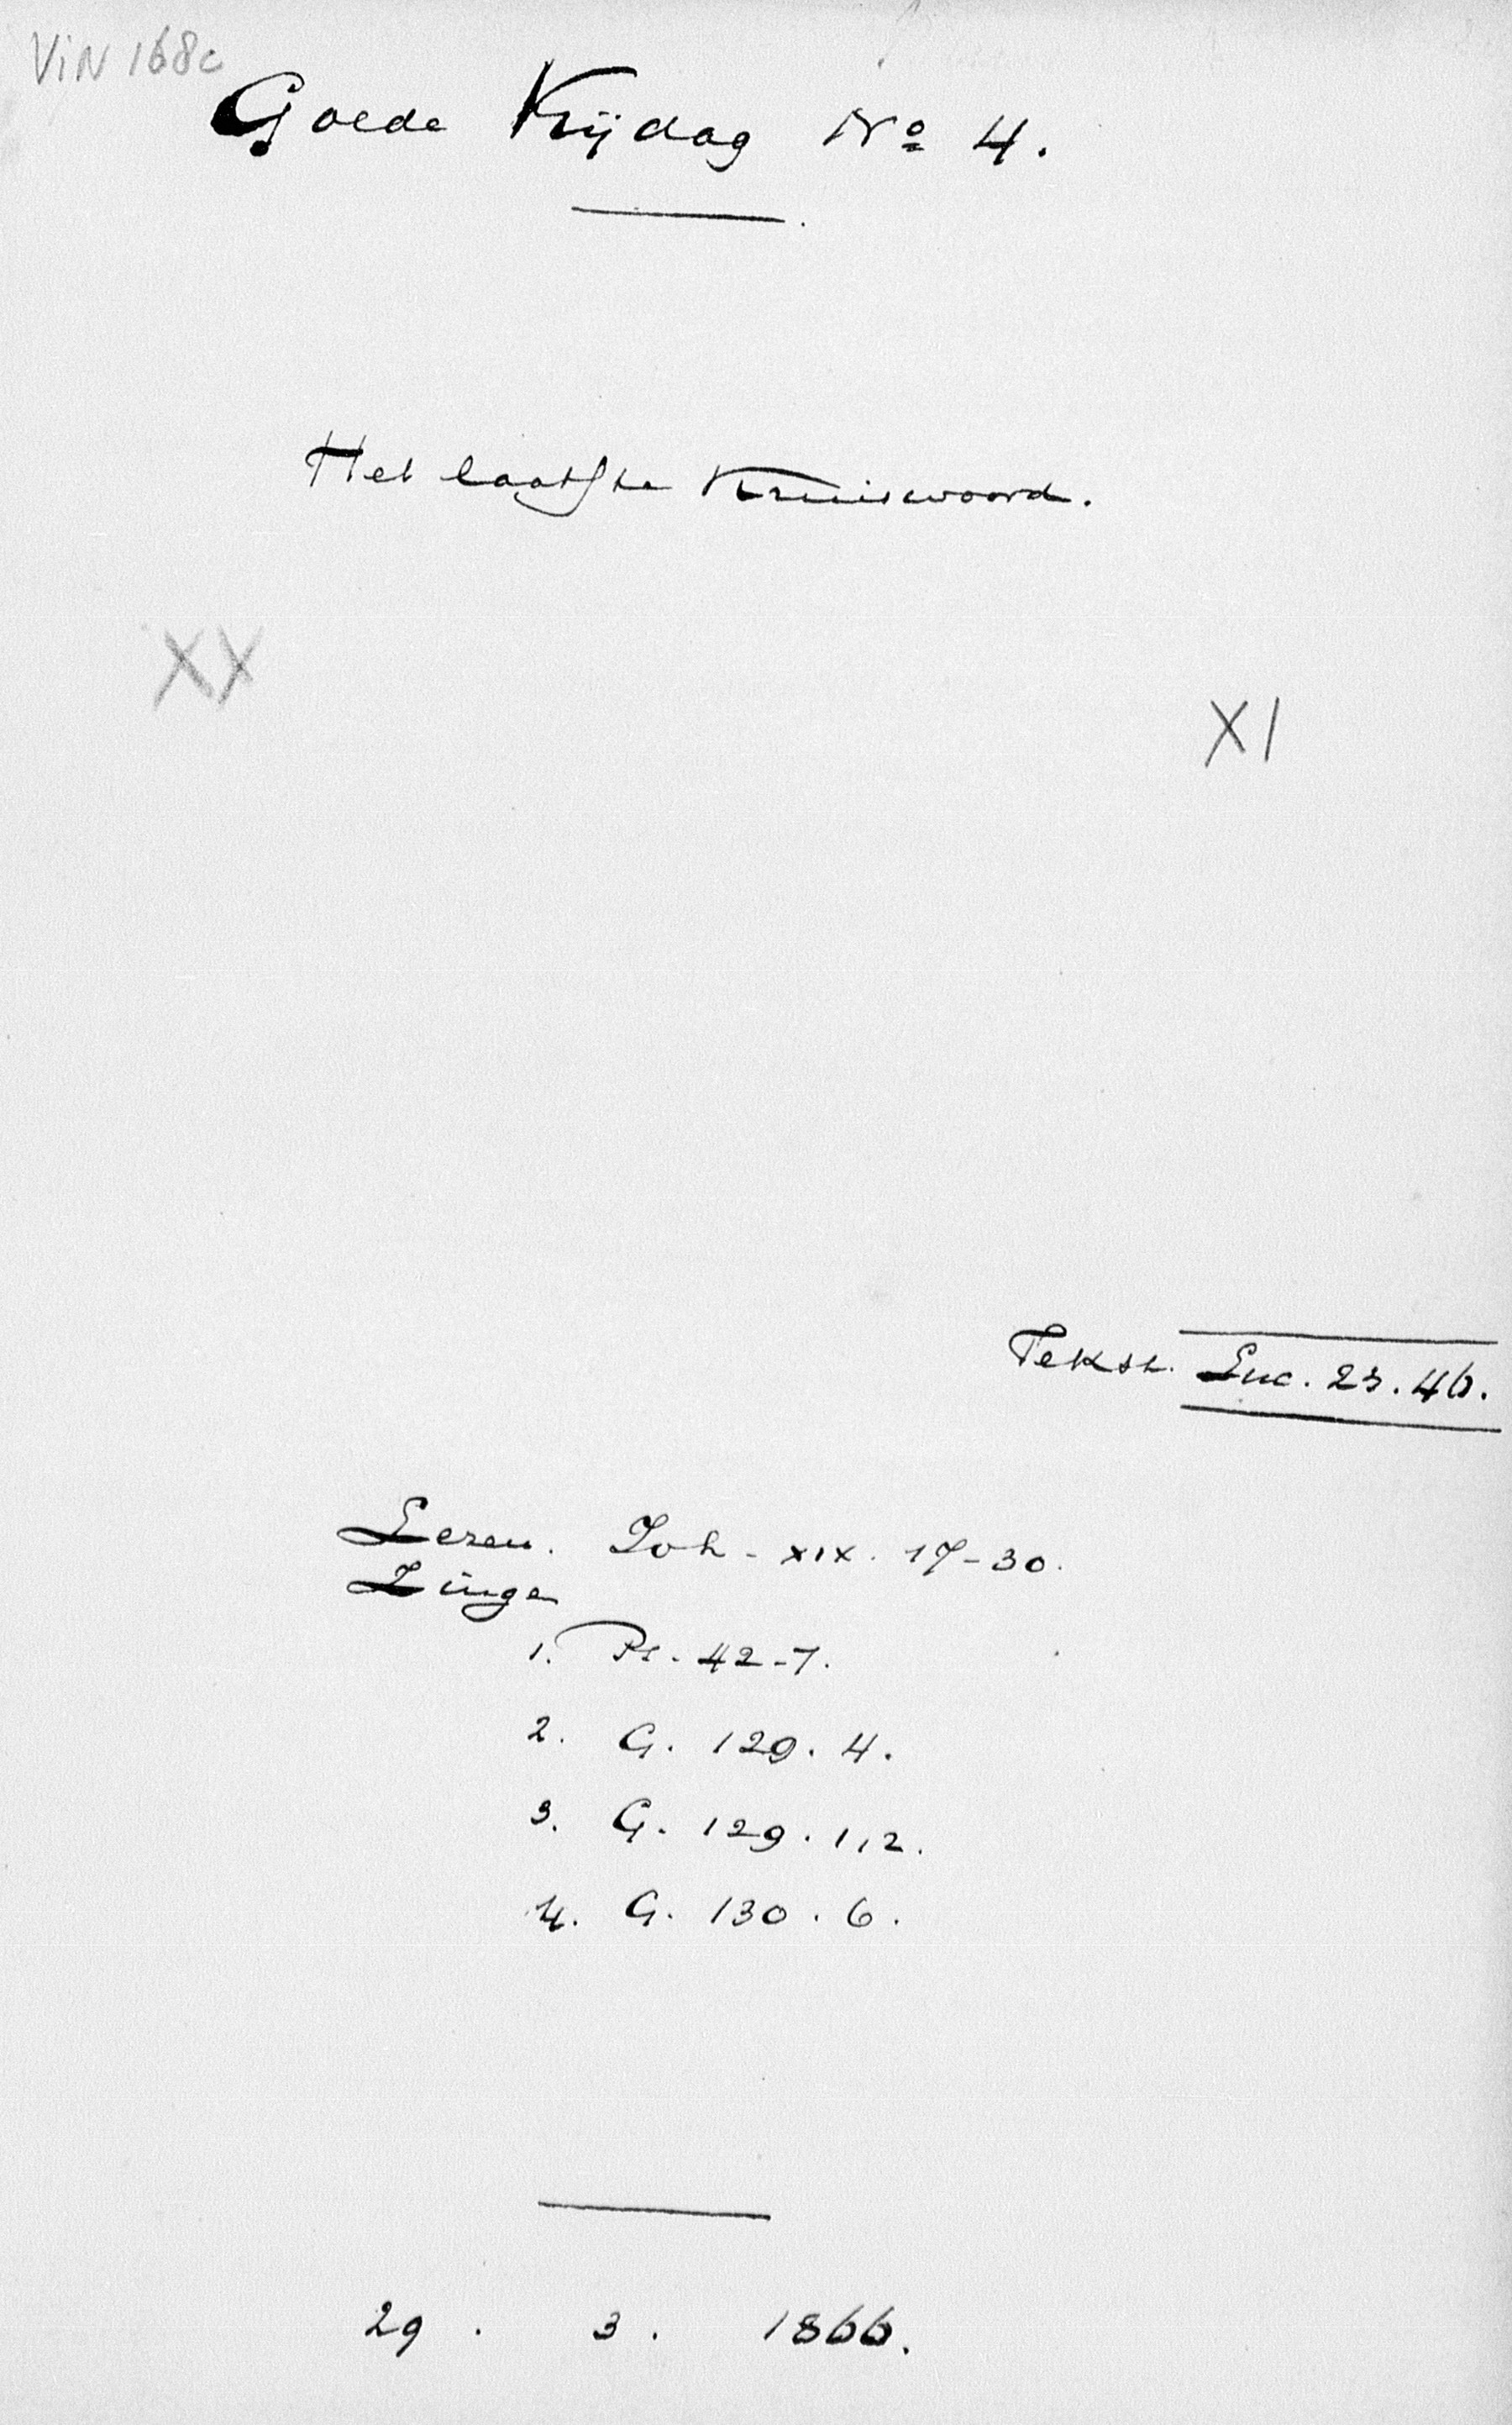 ViN 168c
Goede Vrijdag No 4.
Het laatste Kruiswoord.
XX
XI
Tekst. Luc. 23.46.
Lezen. Joh - XIX. 17-30.
Zingen
1. Ps. 42-7.
2. G. 129. 4.
3. G. 129. 1,2.
4. G. 130. 6.
29 . 3 . 1866.